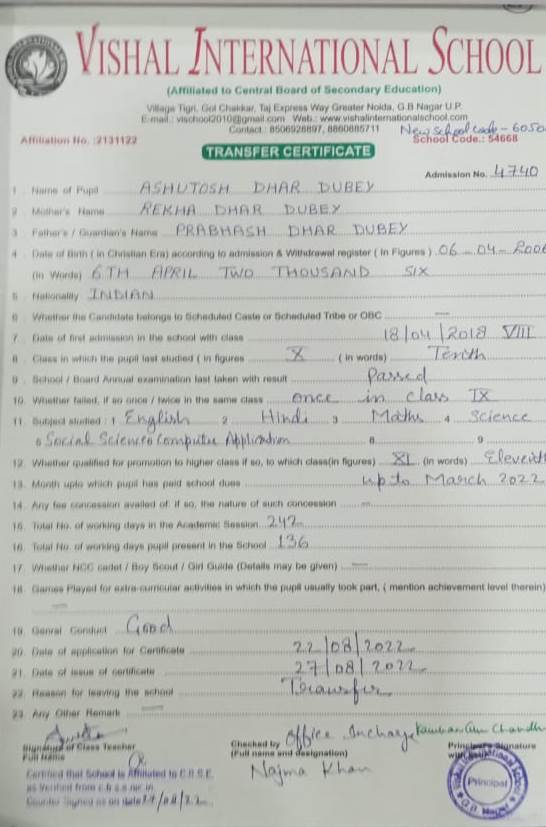 VISHAL INTERNATIONAL SCHOOL
(Affiliated to Central Board of Secondary Education)
Village Tigri, Gol Chakkar, Taj Express Way Greater Noida, G.B Nagar U.P.
E-mail.: vischool2010@gmail.com Web.: www.vishalinternationalschool.com
Contact.: 8506928897, 8860885711 New School Code - 6050
Affiliation No. :2131122 School Code.: 54668
TRANSFER CERTIFICATE
Admission No. 4740
1. Name of Pupil ASHUTOSH DHAR DUBEY
2. Mother's Name REKHA DHAR DUBEY
3. Father's / Guardian's Name PRABHASH DHAR DUBEY
4. Date of Birth ( in Christian Era) according to admission & Withdrawal register ( in Figures ) 06-04-2006
(in Words) 6TH APRIL TWO THOUSAND SIX
5. Nationality INDIAN
6. Whether the Candidate belongs to Scheduled Caste or Scheduled Tribe or OBC —
7. Date of first admission in the school with class 18/04/2018 VIII
8. Class in which the pupil last studied ( in figures X ( in words) Tenth
9. School / Board Annual examination last taken with result Passed
10. Whether failed, if so once / twice in the same class once in class IX
11. Subject studied : 1 English 2 Hindi 3 Maths 4 Science
5 Social Science 6 Computer Application 8 9
12. Whether qualified for promotion to higher class if so, to which class(in figures) XI (in words) Eleventh
13. Month upto which pupil has paid school dues up to March 2022
14. Any fee concession availed of: if so, the nature of such concession —
15. Total No. of working days in the Academic Session. 242
16. Total No. of working days pupil present in the School 136
17. Whether NCC cadet / Boy Scout / Girl Guide (Details may be given) —
18. Games Played for extra-curricular activities in which the pupil usually took part, ( mention achievement level therein)
—
19. Genral Conduct Good
20. Date of application for Certificate 22/08/2022
21. Date of issue of certificate 27/08/2022
22. Reason for leaving the school Transfer
23. Any Other Remark —
Office Incharge
Signature of Class Teacher Checked by Principal's Signature
Full Name (Full name and designation) with
Najma Khan
Certified that School is Affiliated to C.B.S.E.
as Verified from c.b.s.e.nic.in
Counter Signed as on date 27/08/22
Principal